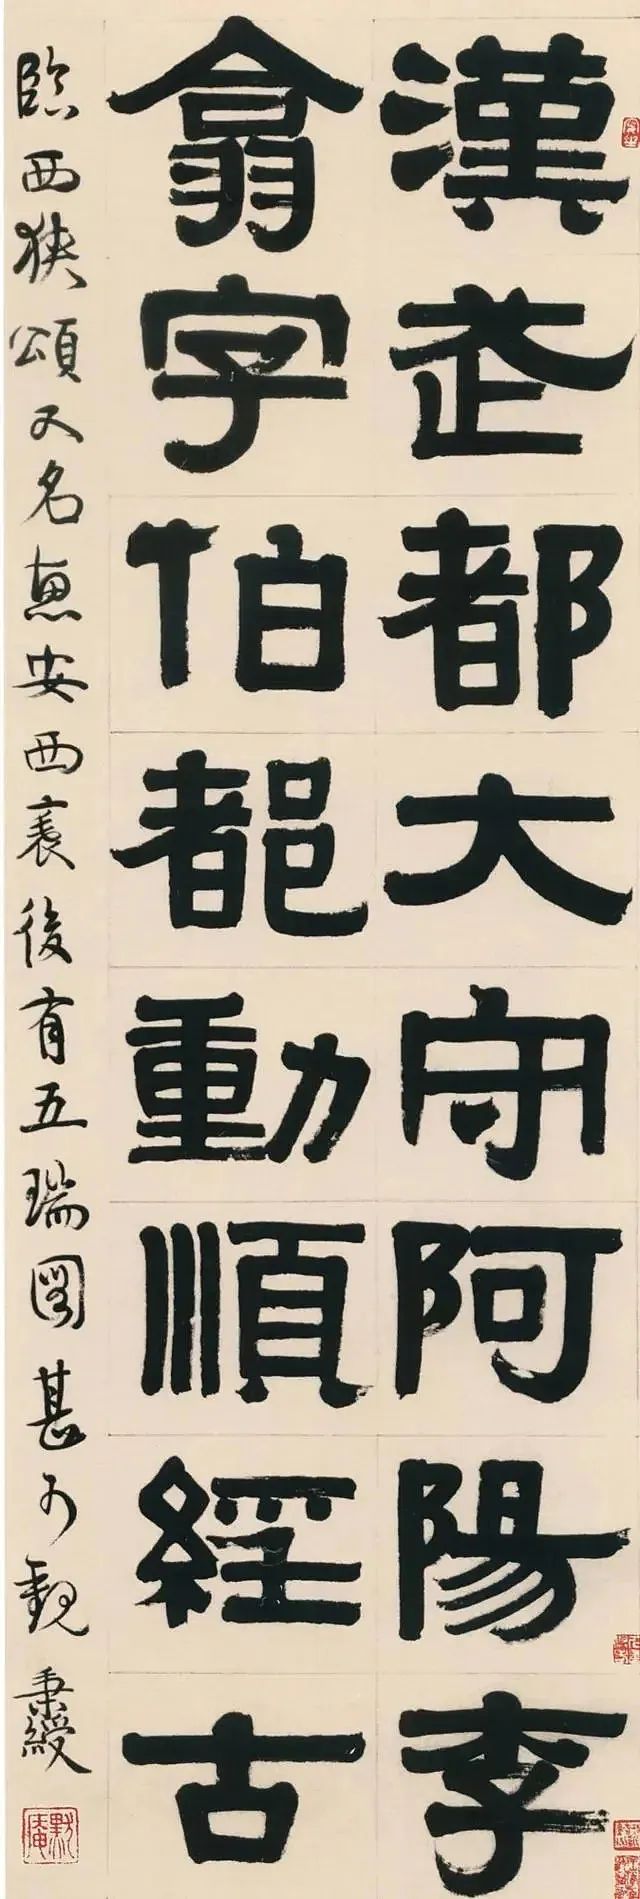 漢武都大守阿陽李
翕字伯都動順經古
臨西狹頌又名惠安西表後有五瑞圖甚可觀 秉綬
默庵